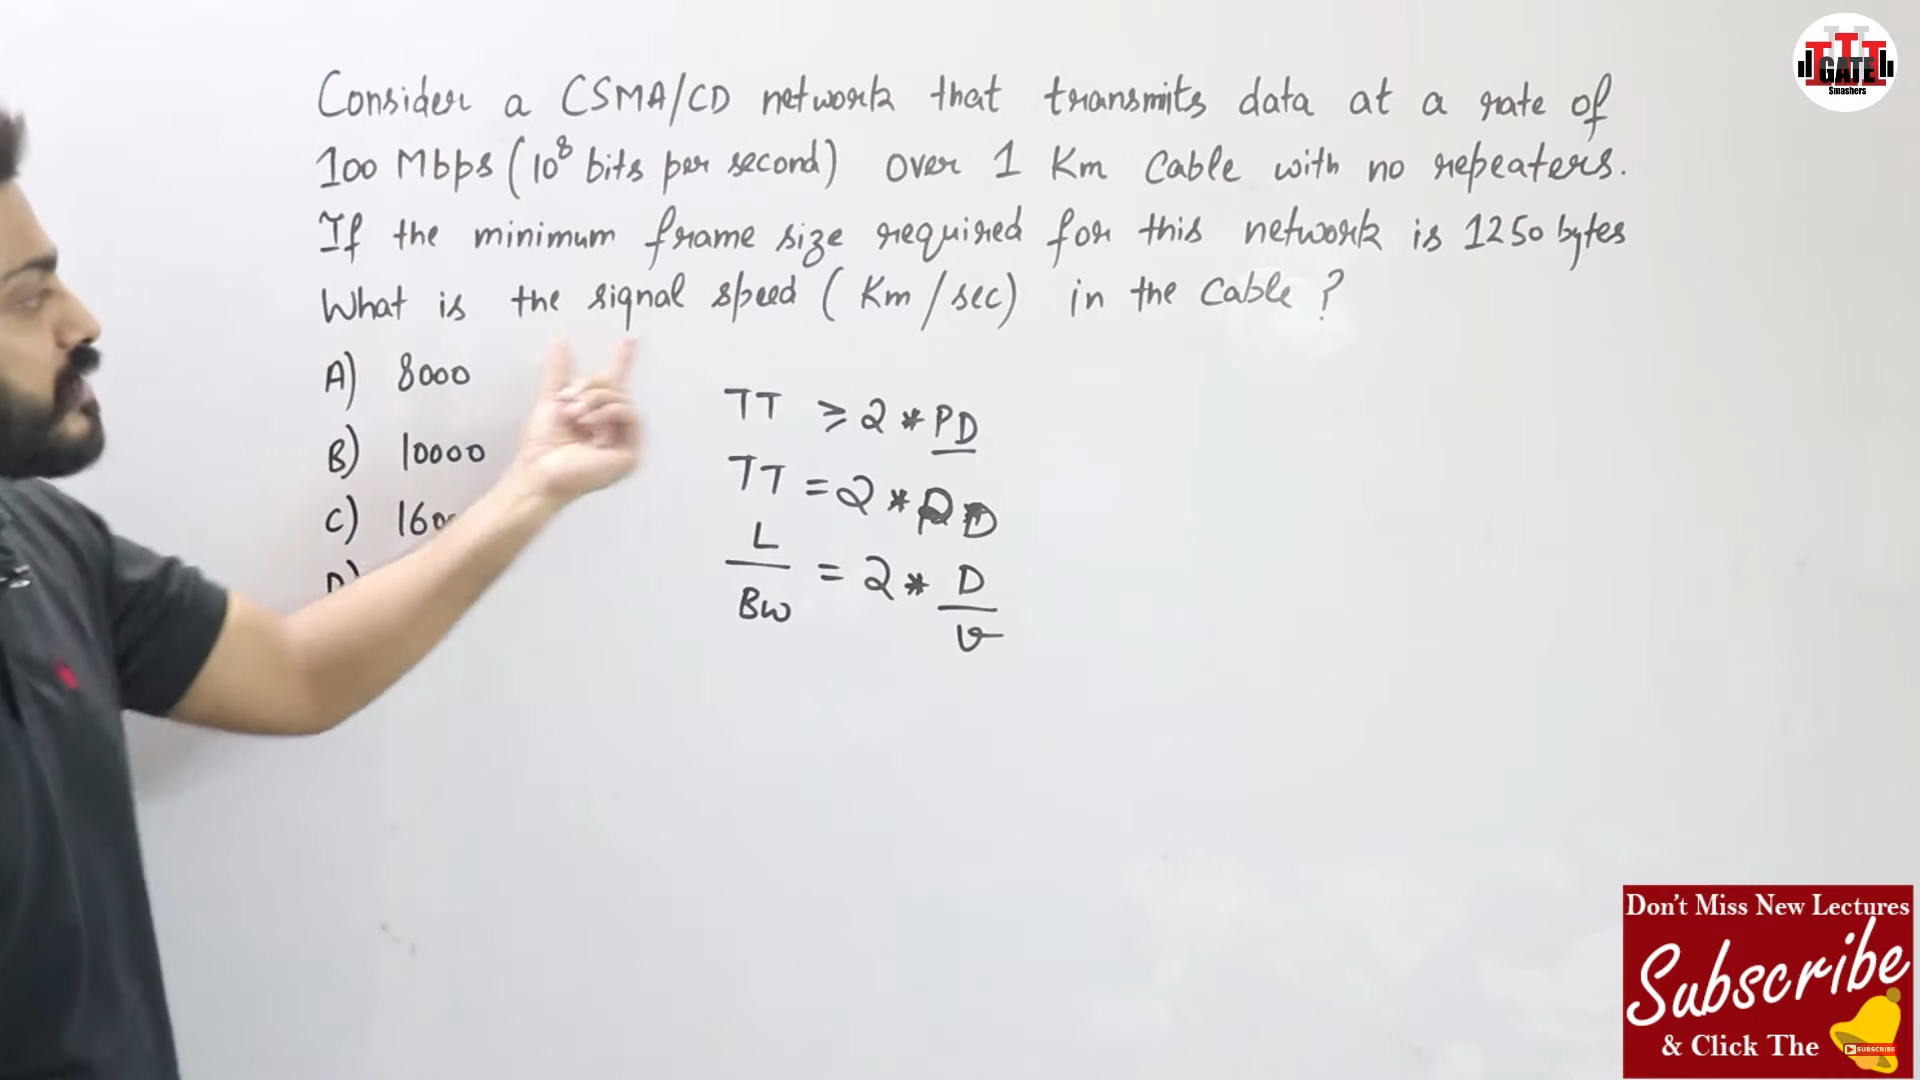 Consider a CSMA/CD network that transmits data at a rate of
100 Mbps (10⁸ bits per second) over 1 Km Cable with no repeaters.
If the minimum frame size required for this network is 1250 bytes
What is the signal speed (Km/sec) in the Cable?
A) 8000
B) 10000
C)
TT ≥ 2 * PD
TT = 2 * PD
L/BW = 2 * D/v
GATE
Smashers
Don't Miss New Lectures
Subscribe
& Click The
SUBSCRIBE